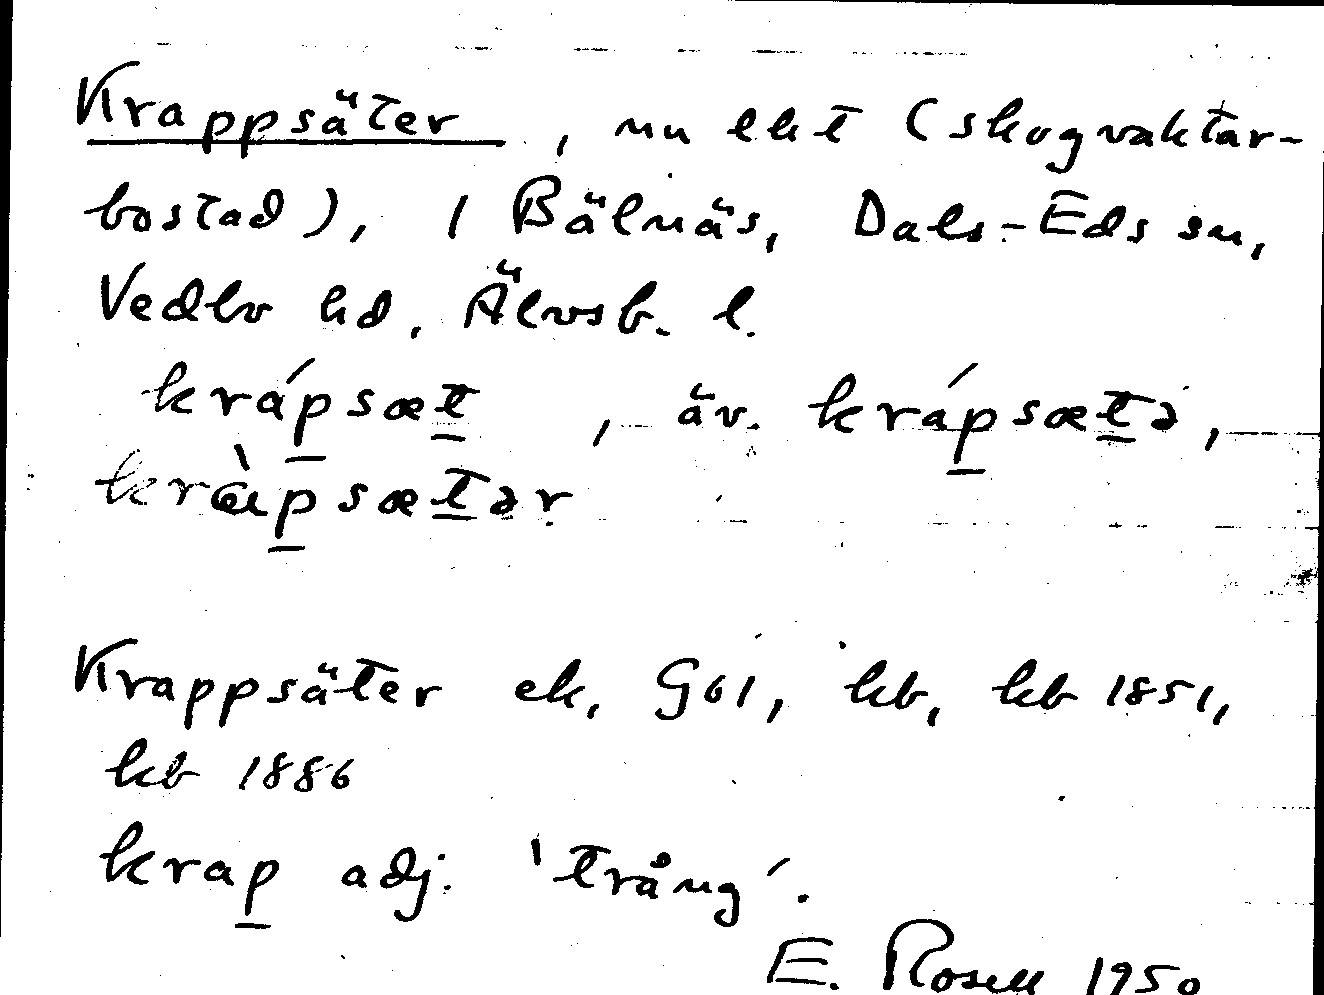 Krappsäter, nu lht (skogvaktar-
bostad), / Bälnäs, Dals-Eds sn,
Vedbo hd, Älvsb. l.
krápsæt, äv. krápsætə,
kràpsætər
Krappsäter ek, G61, kb, kb 1851,
kb 1886
krap adj. 'trång'.
E. Rosell 1950